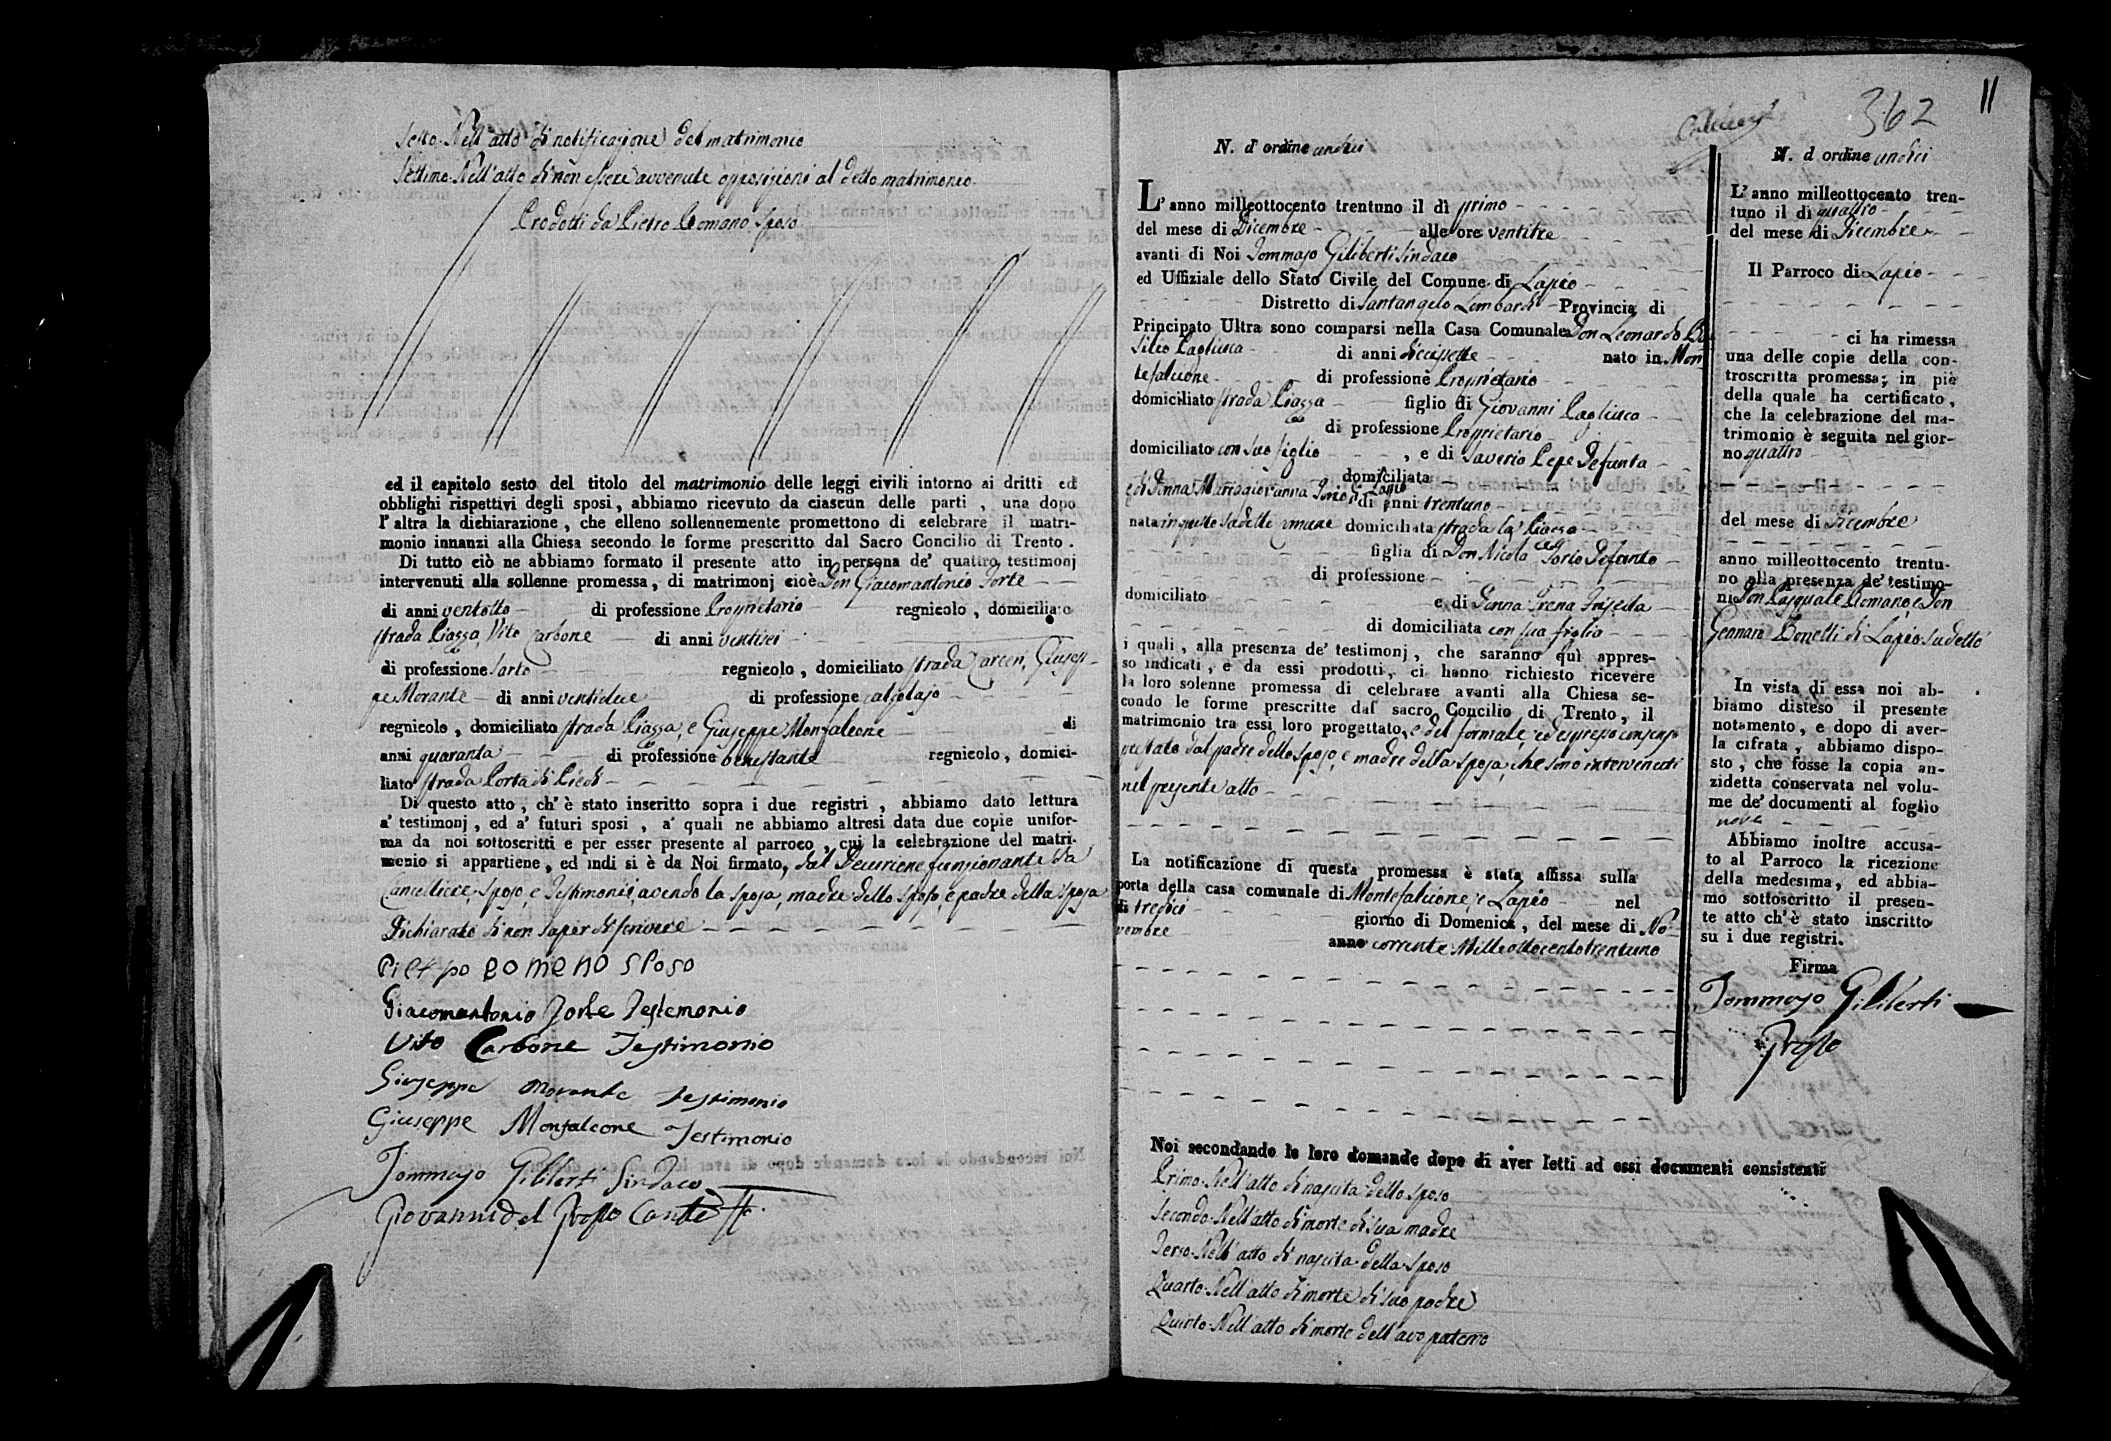 Sesto. Nell'atto di notificazione del matrimonio
Settimo. Nell'atto di non essere avvenute opposizioni al detto matrimonio
Prodotti da Pietro Romano sposo
ed il capitolo sesto del titolo del matrimonio delle leggi civili intorno ai dritti ed
obblighi rispettivi degli sposi, abbiamo ricevuto da ciascun delle parti , una dopo
l'altra la dichiarazione , che elleno sollennemente promettono di celebrare il matri-
monio innanzi alla Chiesa secondo le forme prescritto dal Sacro Concilio di Trento .
Di tutto ciò ne abbiamo formato il presente atto in persona de' quattro testimonj
intervenuti alla sollenne promessa, di matrimonj cioè Don Giacomantonio Forte
di anni ventotto di professione Proprietario regnicolo , domiciliato
strada Piazza, Vito Carbone di anni ventisei
di professione Sarto regnicolo , domiciliato strada Carceri, Giusep-
pe Morante di anni ventidue di professione calzolajo
regnicolo , domiciliato strada Piazza, e Giuseppe Monfalcone di
anni quaranta di professione benestante regnicolo , domici-
liato strada Porta di Piedi
Di questo atto , ch' è stato inseritto sopra i due registri , abbiamo dato lettura
a' testimonj , ed a' futuri sposi , a' quali ne abbiamo altresi data due copie unifor-
ma da noi sottoscritti e per esser presente al parroco , cui la celebrazione del matri-
monio si appartiene , ed indi si è da Noi firmato, dal Decurione funzionante da
Cancelliere, sposo, e Testimonii, avendo la sposa, madre dello sposo, e padre della sposa
Dichiarato di non saper di scrivere
Pietro Romano sposo
Giacomantonio Forte Testemonio
Vito Carbone Testimonio
Giuseppe Morante testimonio
Giuseppe Monfalcone Testimonio
Tommaso Giliberti Sindaco
Giovanni del Prosto
11
362
N. d' ordine undici
L' anno milleottocento trentuno il dì primo
del mese di Dicembre alle ore ventitre
avanti di Noi Tommaso Giliberti Sindaco
ed Uffiziale dello Stato Civile del Comune di Lapio
Distretto di Santangelo Lombardi Provincia di
Principato Ultra sono comparsi nella Casa Comunale Don Leonardo Ba-
silio Pagliuca di anni diecisette nato in Mon
tefalcione di professione Proprietario
domiciliato strada Piazza figlio di Giovanni Pagliuca
di professione Proprietario
domiciliato con suo figlio , e di Saveria Pepe Defunta
domiciliata
e di Donna Mariagiovanna di Lapio di anni trentuno
nata in questo sudetto Comune domiciliata strada la Piazza
figlia di Don Nicola Defunto
di professione
domiciliato e di Donna Irena
di domiciliata con sua figlia
i quali , alla presenza de' testimonj , che saranno qui appres-
so indicati , e da essi prodotti , ci hanno richiesto ricevere
la loro solenne promessa di celebrare avanti alla Chiesa se-
condo le forme prescritte dal sacro Concilio di Trento , il
matrimonio tra essi loro progettato, e del formale, ed espresso consenso
prestato dal padre dello sposo, e madre della sposa, che sono intervenuti
nel presente atto
La notificazione di questa promessa è stata affissa sulla
porta della casa comunale di Montefalcione, e Lapio nel
di tredici giorno di Domenica , del mese di No-
vembre anno corrente Milleottocentotrentuno
Noi secondando le loro domande dopo di aver letti ad essi documenti consistenti
Primo. Nell'atto di nascita dello sposo
Secondo. Nell'atto di morte di sua madre
Terso. Nell'atto di nascita della sposo
Quarto. Nell'atto di morte di suo padre
Quinto. Nell'atto di morte dell'avo paterno
N. d ordine undici
L' anno milleottocento tren-
tuno il di quattro
del mese di Dicembre
Il Parroco di Lapio
ci ha rimessa
una delle copie della con-
troscritta promessa; in piè
della quale ha certificato ,
che la celebrazione del ma-
trimonio è seguita nel gior-
no quattro
del mese di Dicembre
anno milleottocento trentu-
no alla presenza de' testimo-
nj Don Pasquale Romano, e Don
Gennaro Bonelli di Lapio sudetto
In vista di essa noi ab-
biamo disteso il presente
notamento , e dopo di aver-
la cifrata , abbiamo dispo-
sto , che fosse la copia an-
zidetta conservata nel volu-
me de' documenti al foglio
nove
Abbiamo inoltre accusa-
to al Parroco la ricezione
della medesima, ed abbia-
mo sottoscritto il presen-
te atto ch' è stato inscritto
su i due registri.
Firma
Tommaso Giliberti
Prosto